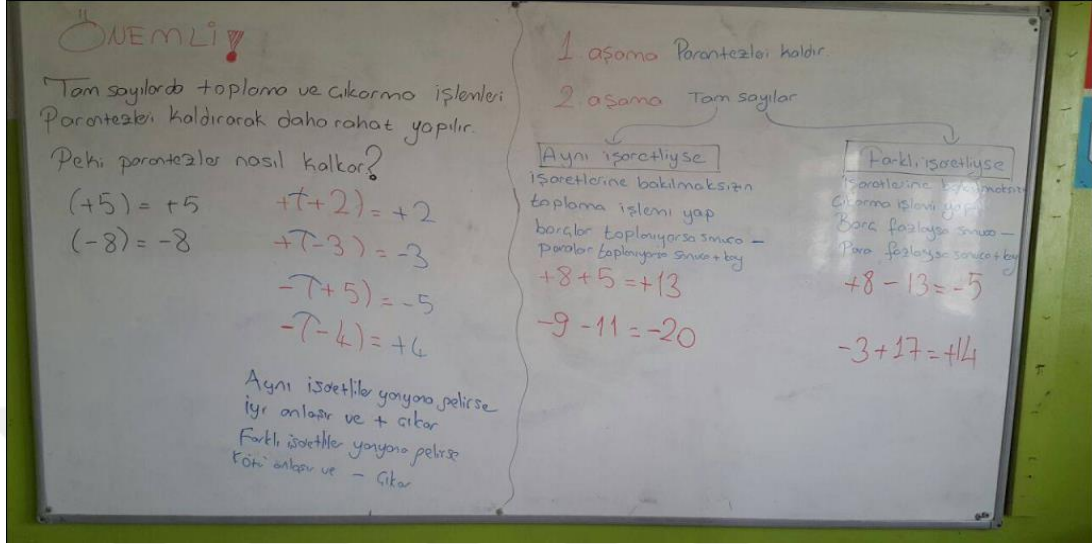 ÖNEMLİ!
Tam sayılarda toplama ve çıkarma işlemleri
Parantezleri kaldırarak daha rahat yapılır.
Peki parantezler nasıl kalkar?
(+5) = +5
(-8) = -8
+(+2) = +2
+(-3) = -3
-(+5) = -5
-(-4) = +4
Aynı işaretliler yanyana gelirse
iyi anlaşır ve + çıkar
Farklı işaretliler yanyana gelirse
kötü anlaşır ve - çıkar
1. aşama Parantezleri kaldır.
2. aşama Tam sayılar
Aynı işaretliyse
işaretlerine bakılmaksızın
toplama işlemi yap
borçlar toplanıyorsa sonuca -
paralar toplanıyorsa sonuca + koy
+8+5=+13
-9-11=-20
Farklı işaretliyse
işaretlerine bakılmaksızın
çıkarma işlemi yap
Borç fazlaysa sonuca -
Para fazlaysa sonuca + koy
+8-13=-5
-3+17=+14